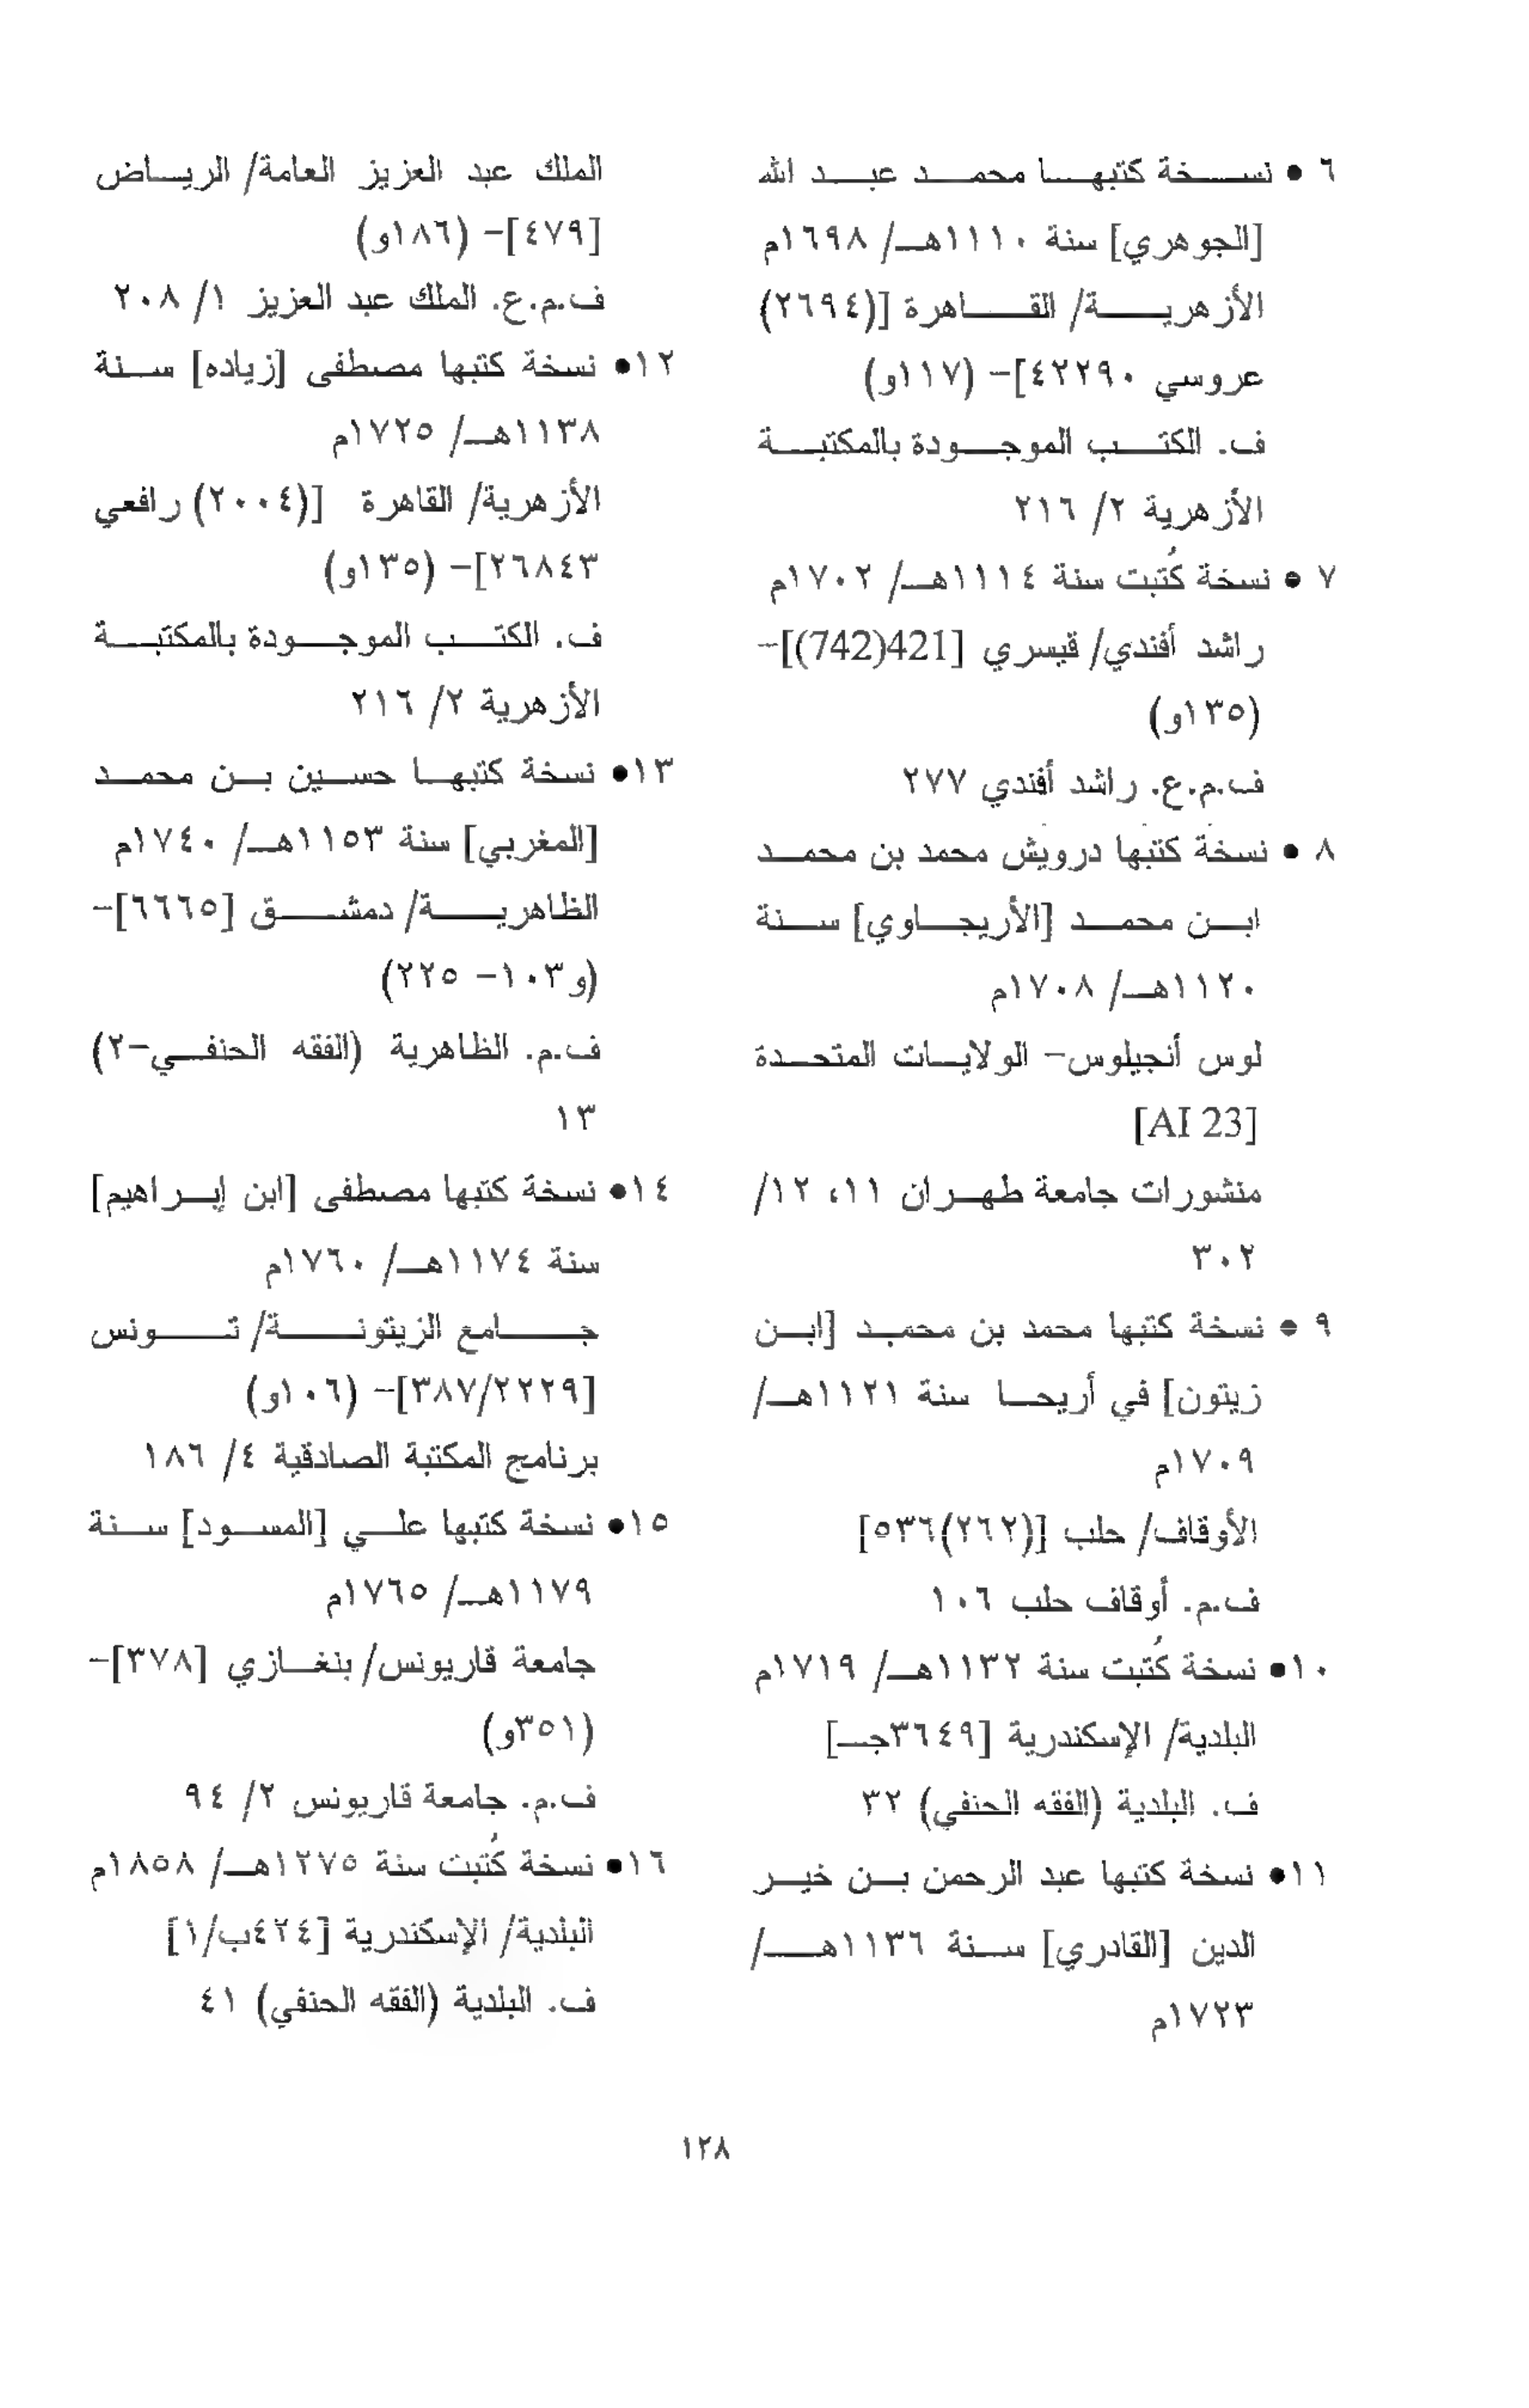 ٦ ● نسخة كتبها محمد عبد الله
[الجوهري] سنة ١١١٠هـ/ ١٦٩٨م
الأزهرية/ القاهرة [(٢٦٩٤)
عروسي ٤٢٢٩٠]- (١١٧و)
ف. الكتب الموجودة بالمكتبة
الأزهرية ٢/ ٢١٦
٧ ● نسخة كُتبت سنة ١١١٤هـ/ ١٧٠٢م
راشد أفندي/ قيسري [421(742)]-
(١٣٥و)
ف.م.ع. راشد أفندي ٢٧٧
٨ ● نسخة كتبها درويش محمد بن محمد
ابن محمد [الأريجاوي] سنة
١١٢٠هـ/ ١٧٠٨م
لوس أنجيلوس- الولايات المتحدة
[AI 23]
منشورات جامعة طهران ١١، ١٢/
٣٠٢
٩ ● نسخة كتبها محمد بن محمد [ابن
زيتون] في أريحا سنة ١١٢١هـ/
١٧٠٩م
الأوقاف/ حلب [(٢٦٢)٥٣٦]
ف.م. أوقاف حلب ١٠٦
١٠● نسخة كُتبت سنة ١١٣٢هـ/ ١٧١٩م
البلدية/ الإسكندرية [٣٦٤٩جـ]
ف. البلدية (الفقه الحنفي) ٣٢
١١● نسخة كتبها عبد الرحمن بن خير
الدين [القادري] سنة ١١٣٦هـ/
١٧٢٣م
الملك عبد العزيز العامة/ الرياض
[٤٧٩]- (١٨٦و)
ف.م.ع. الملك عبد العزيز ١/ ٢٠٨
١٢● نسخة كتبها مصطفى [زياده] سنة
١١٣٨هـ/ ١٧٢٥م
الأزهرية/ القاهرة [(٢٠٠٤) رافعي
٢٦٨٤٣]- (١٣٥و)
ف. الكتب الموجودة بالمكتبة
الأزهرية ٢/ ٢١٦
١٣● نسخة كتبها حسين بن محمد
[المغربي] سنة ١١٥٣هـ/ ١٧٤٠م
الظاهرية/ دمشق [٦٦٦٥]-
(و١٠٣- ٢٢٥)
ف.م. الظاهرية (الفقه الحنفي-٢)
١٣
١٤● نسخة كتبها مصطفى [ابن إبراهيم]
سنة ١١٧٤هـ/ ١٧٦٠م
جامع الزيتونة/ تونس
[٣٨٧/٢٢٢٩]- (١٠٦و)
برنامج المكتبة الصادقية ٤/ ١٨٦
١٥● نسخة كتبها علي [المسود] سنة
١١٧٩هـ/ ١٧٦٥م
جامعة قاريونس/ بنغازي [٣٧٨]-
(٣٥١و)
ف.م. جامعة قاريونس ٢/ ٩٤
١٦● نسخة كُتبت سنة ١٢٧٥هـ/ ١٨٥٨م
البلدية/ الإسكندرية [٤٢٤ب/١]
ف. البلدية (الفقه الحنفي) ٤١
١٢٨